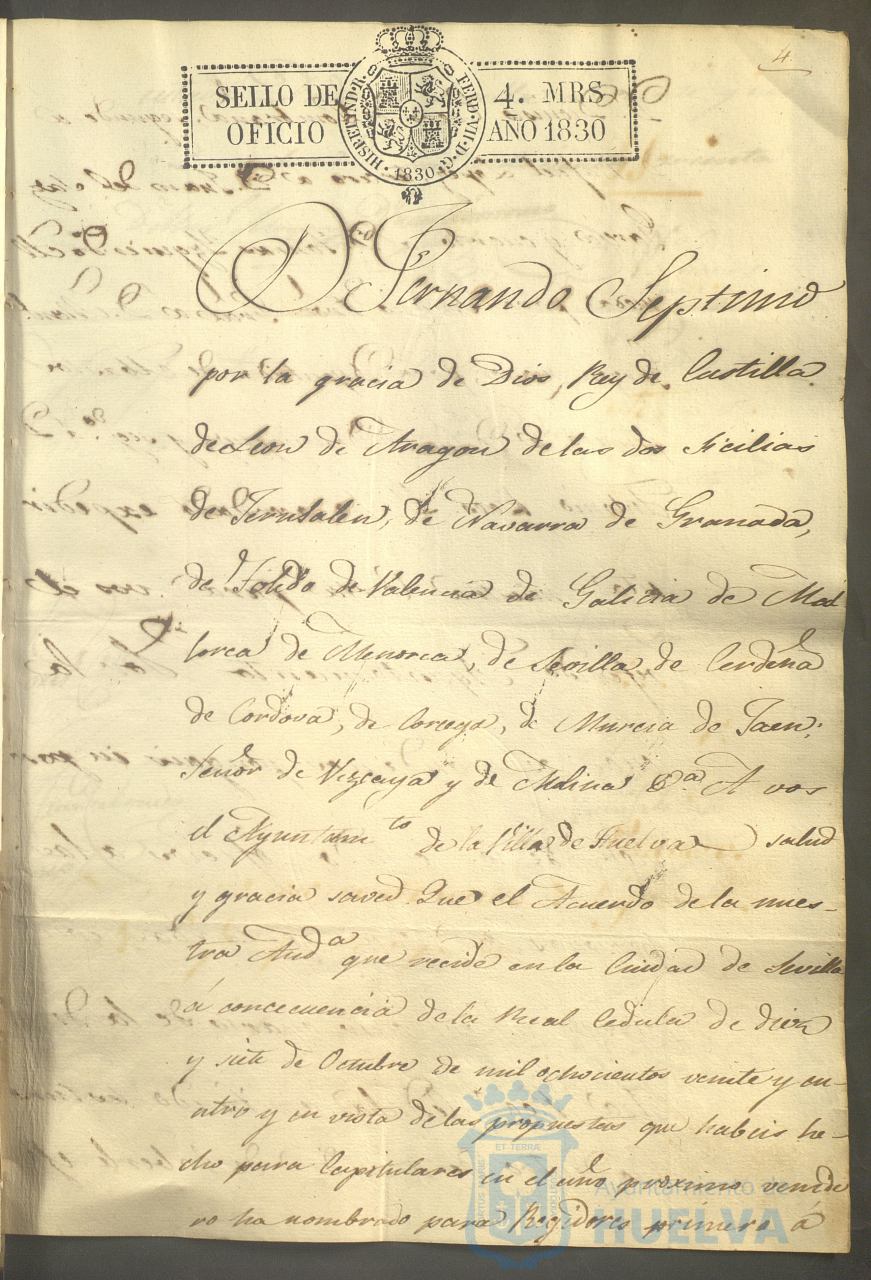 4.
SELLO DE OFICIO
4. MRS AÑO 1830
HISP. ET IND. R. FERD. VII. D. G. 1830
Dn. Fernando Septimo
por la gracia de Dios, Rey de Castilla
de Leon de Aragon de las dos Sicilias
de Jerusalen, de Navarra de Granada,
de Toledo de Valencia de Galicia de Mal
lorca de Menorca, de Sevilla de Cerdeña
de Cordova, de Corcega, de Murcia de Jaen,
Señor de Vizcaya y de Molina &a. A vos
el Ayuntamto. de la Villa de Huelva salud
y gracia saved Que el Acuerdo de la nues-
tra Auda. que recide en la Ciudad de Sevilla
á concecuencia de la Real Cedula de diez
y siete de Octubre de mil ochocientos veinte y cu-
atro y en vista de las propuestas que habeis he-
cho para Capitulares en el año proximo venide
ro ha nombrado para Regidores primero á
ET TERRÆ
Ayuntamiento
HUELVA